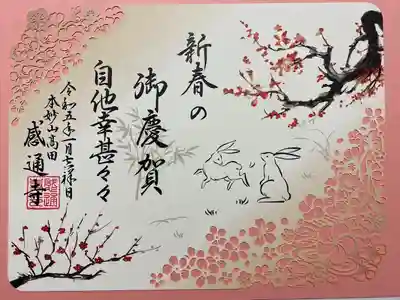 新春の
御慶賀
自他幸甚々々
令和五年一月吉祥日
本妙山高田
感通寺